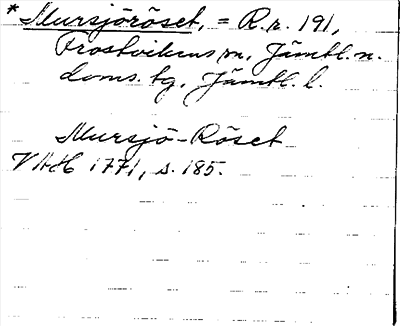 * Mursjöröset, = R.r. 191,
Frostvikens sn, Jämtl. n.
doms. tg, Jämtl. l.
Mursjö-Röset
VAH 1771, s. 185.